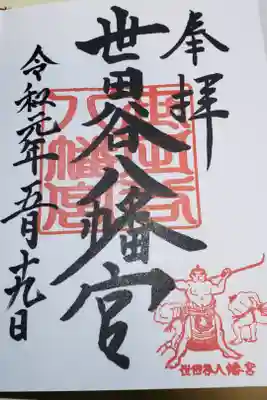 奉拝
世田谷八幡宮
令和元年五月十九日
世田谷八幡宮
世田谷八幡宮